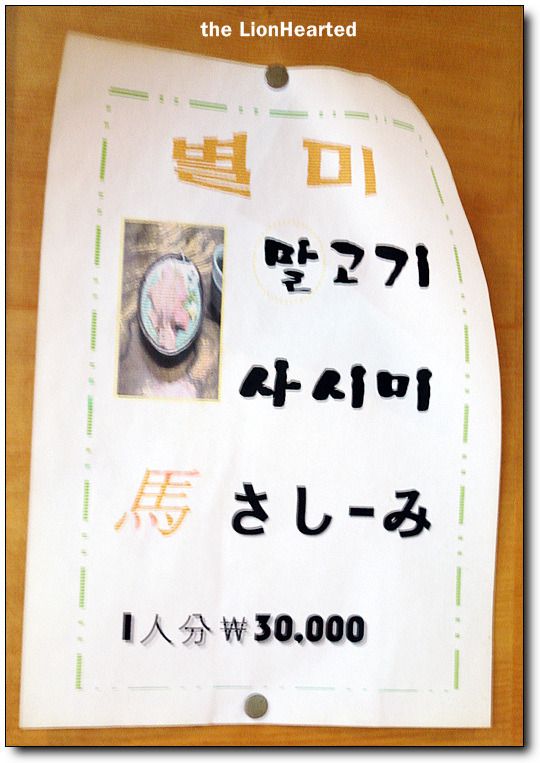 the LionHearted
별미
말고기
사시미
馬 さしーみ
1人分₩30.000